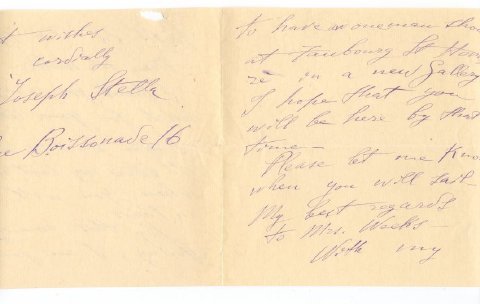 to have a one man show
at Faubourg St Honor
ré in a new Gallery
I hope that you
will be here by that
time—
Please let me know
when you will sail—
My best regards
to Mrs. Weeks
With my
st wishes
cordially
Joseph Stella
ue Boissonade 16